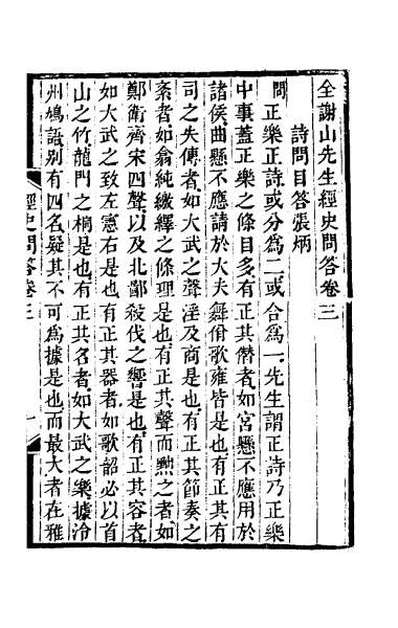 全謝山先生經史問答卷三
詩問目答張炳
問正樂正詩或分爲二或合爲一先生謂正詩乃正樂
中事蓋正樂之條目多有正其僭者如宮懸不應用於
諸侯曲懸不應請於大夫舞佾歌雍皆是也有正其有
司之失傳者如大武之聲淫及商是也有正其節奏之
紊者如翕純繳繹之條理是也有正其聲而黜之者如
鄭衛齊宋四聲以及北鄙殺伐之響是也有正其容者
如大武之致左憲右是也有正其器者如歌韶必以首
山之竹龍門之桐是也有正其名者如大武之樂據泠
州鳩語別有四名疑其不可爲據是也而最大者在雅
經史問答卷三
一